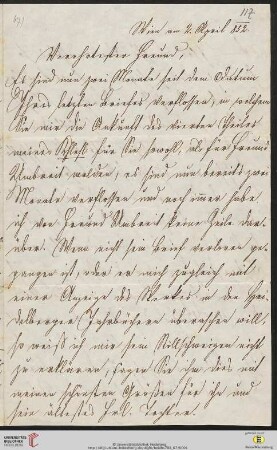 117.
Wien am 4. April 852
Verehrtester Freund,
Es sind nun zwei Monate seit dem Datum
Ihres letzten Briefes verflossen, in welchem
Sie mir die Ankunft des vierten Theiles
meines für Sie sowohl, als für Freund
Umbreit melden, es sind nun bereits zwei
Monate verflossen und noch immer habe
ich von Freund Umbreit keine Zeile dar-
über. Wenn nicht sein Brief verloren ge-
gangen ist, oder er mich zugleich mit
einer Anzeige des Werkes in den Hei-
delberger Jahrbüchern überraschen will,
so weiß ich mir sein Stillschweigen nicht
zu erklären, sagen Sie ihm dies mit
meinen schönsten Grüßen für ihn und
sein ältestes Tochter.
UNIVERSITÄTS-
BIBLIOTHEK
HEIDELBERG